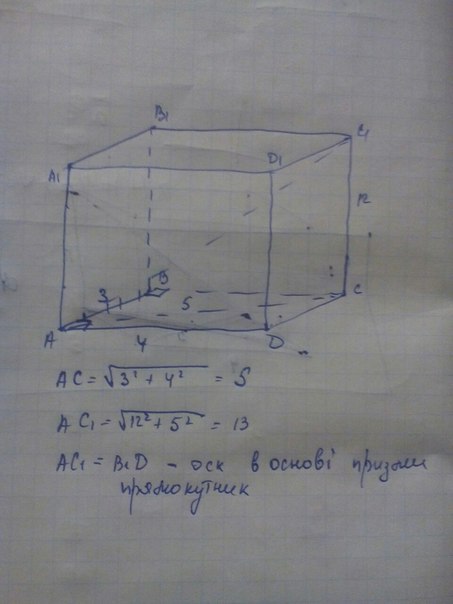 B₁
C₁
A₁
D₁
12
B
3
5
C
A
4
D
AC = √3² + 4² = 5
AC₁ = √12² + 5² = 13
AC₁ = B₁D - оск в основі призми
прямокутник